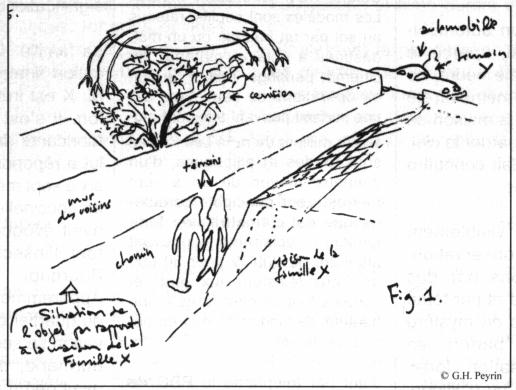 automobile
témoin
cerisier
témoins
mur
des voisins
chemin
maison de la
famille X
Fig. 1.
Situation de
l'objet par rapport
à la maison de la
Famille X
© G.H. Peyrin